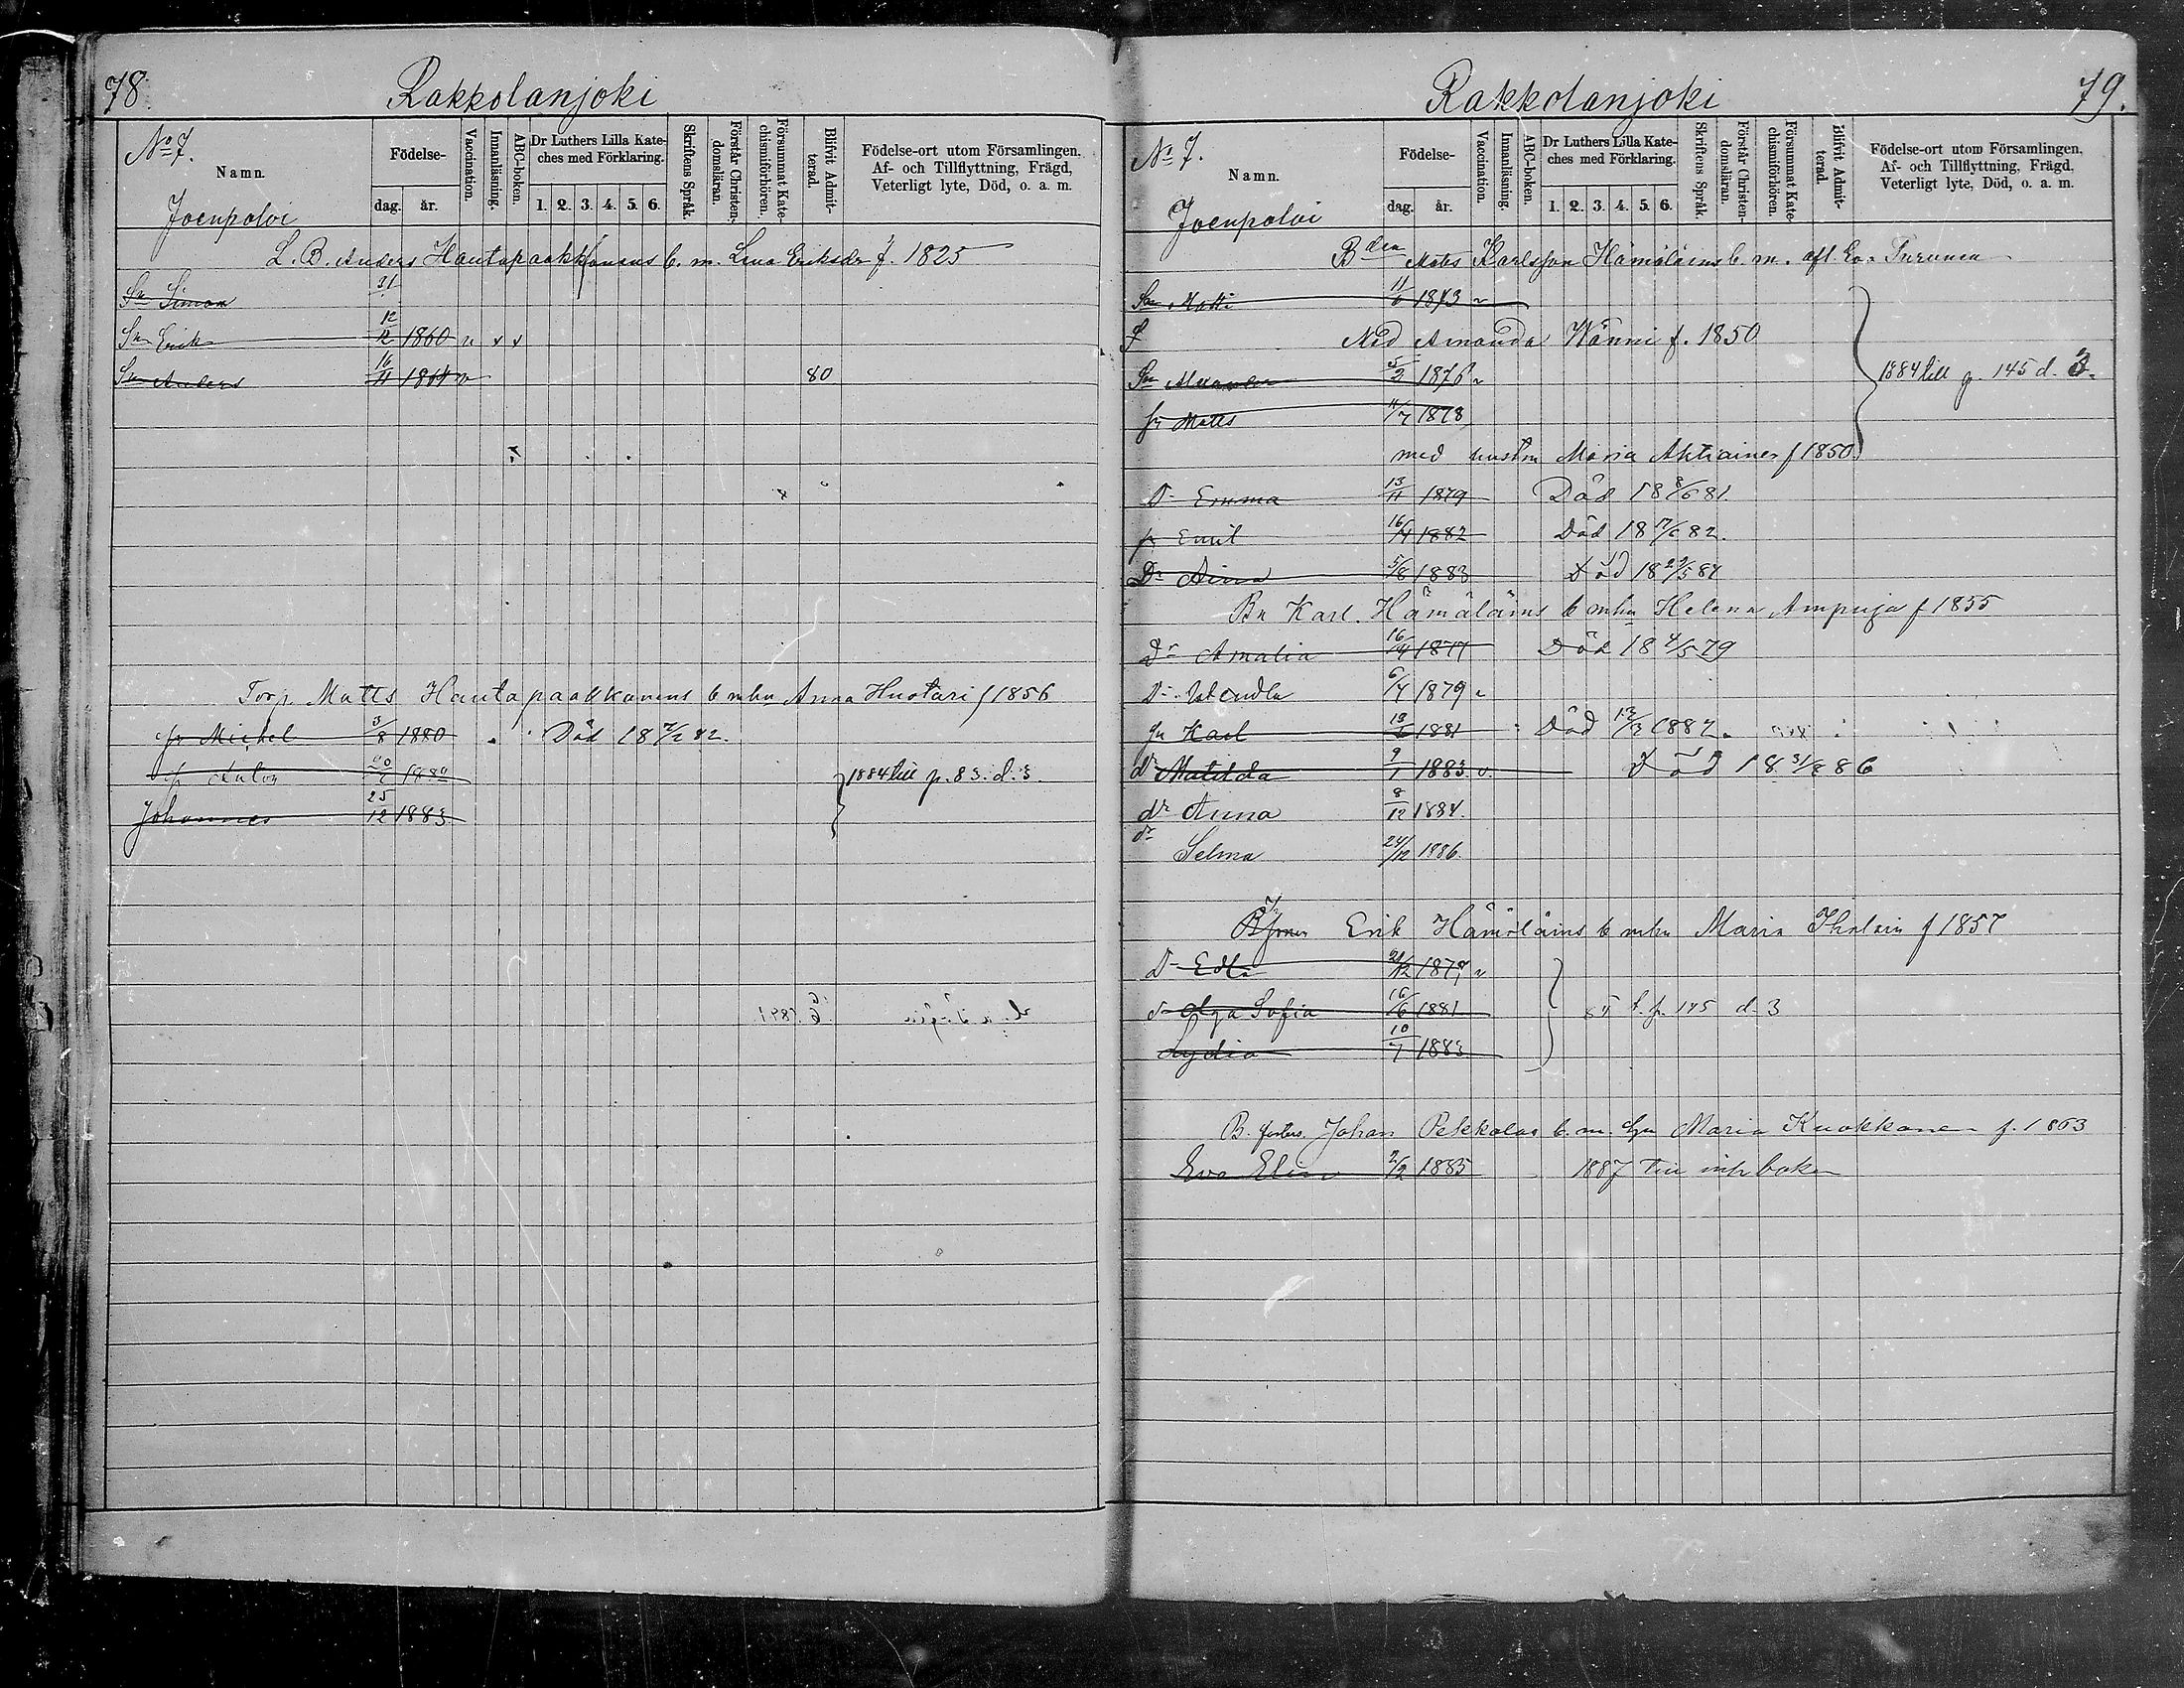 78.
Rakkolanjoki
No 7.
Namn.
Joenpolvi
Födelse-
dag. år.
Vaccination.
Innanläsning.
ABC-boken.
Dr Luthers Lilla Kate-
ches med Förklaring.
1. 2. 3. 4. 5. 6.
Skriftens Språk.
Förstår Christen-
domsläran.
Försummat Kate-
chismiförhören.
Blifvit Admit-
terad.
Födelse-ort utom Församlingen,
Af- och Tillflyttning, Frägd,
Veterligt lyte, Död, o. a. m.
L. B. Anders Hautapaakkonens b. m. Lena Eriksdr f. 1825
Sn Simon 31
Sn Erik 12/12 1860 v x x
Sn Anders 16/11 1864 v 80
Torp. Matts Hautapaakkonens b mhu Anna Huotari f 1856
sn Mickel 3/8 1880 Död 18 7/2 82.
sn Anton 1880
1884 till p. 83. d. 3.
Johannes 25/12 1883
79.
Rakkolanjoki
No 7.
Namn.
Joenpolvi
Födelse-
dag. år.
Vaccination.
Innanläsning.
ABC-boken.
Dr Luthers Lilla Kate-
ches med Förklaring.
1. 2. 3. 4. 5. 6.
Skriftens Språk.
Förstår Christen-
domsläran.
Försummat Kate-
chismiförhören.
Blifvit Admit-
terad.
Födelse-ort utom Församlingen,
Af- och Tillflyttning, Frägd,
Veterligt lyte, Död, o. a. m.
Bden Mats Karlsson Hämäläins b. m. afl. Eva Turunen
Sn Matti 11/6 1873 v
Med Amanda Wänni f. 1850
Sn Alexander 5/2 1876 v
1884 till p. 145 d. 3.
sn Matts 11/7 1878
med hustru Maria Aktiainen f 1850
Dr Emma 13/11 1879 Död 18 8/6 81.
sn Emil 16/4 1882 Död 18 17/6 82.
Dr Aina 5/8 1883 Död 18 29/5 84
Bn Karl Hämäläins b mhu Helena Ampuja f 1855
Dr Amalia 16/4 1877 Död 18 4/5 79
Dr Wendla 6/4 1879 v
Sn Karl 1881 Död 12/3 1882.
dr Matilda 9/1 1883 v. Död 18 31/8 86
dr Anna 8/12 1884.
dr Selma 24/12 1886.
Erik Hämäläins b mhu Maria Ihalain f 1857
Dr Edla 21/12 1879 v
d Olga Sofia 16/6 1881
85 t. p. 145 d. 3
Lydia 10/7 1883
B. fosters. Johan Pekkolas b. m. hu Maria Kuokkanen f. 1863
Eva Elin 2/2 1885 1887 till inh boken